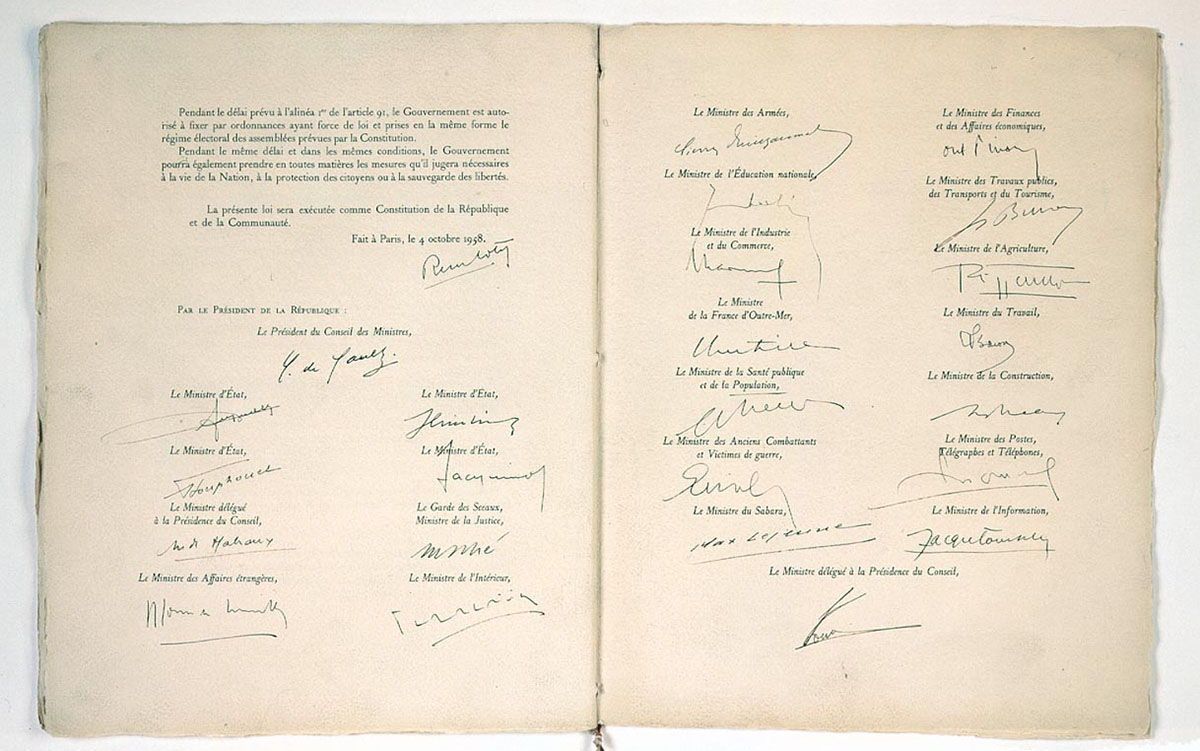 Pendant le délai prévu à l'alinéa 1er de l'article 91, le Gouvernement est auto-
risé à fixer par ordonnances ayant force de loi et prises en la même forme le
régime électoral des assemblées prévues par la Constitution.
Pendant le même délai et dans les mêmes conditions, le Gouvernement
pourra également prendre en toutes matières les mesures qu'il jugera nécessaires
à la vie de la Nation, à la protection des citoyens ou à la sauvegarde des libertés.
La présente loi sera exécutée comme Constitution de la République
et de la Communauté.
Fait à Paris, le 4 octobre 1958.
Par le Président de la République :
Le Président du Conseil des Ministres,
de Gaulle
Le Ministre d'État,
Le Ministre d'État,
Le Ministre d'État,
Le Ministre d'État,
Jacquinot
Le Ministre délégué
à la Présidence du Conseil,
Le Garde des Sceaux,
Ministre de la Justice,
Le Ministre des Affaires étrangères,
Le Ministre de l'Intérieur,
Le Ministre des Armées,
Le Ministre de l'Éducation nationale,
Le Ministre de l'Industrie
et du Commerce,
Le Ministre
de la France d'Outre-Mer,
Le Ministre de la Santé publique
et de la Population,
Le Ministre des Anciens Combattants
et Victimes de guerre,
Le Ministre du Sahara,
Max Lejeune
Le Ministre des Finances
et des Affaires économiques,
Le Ministre des Travaux publics,
des Transports et du Tourisme,
Le Ministre de l'Agriculture,
Le Ministre du Travail,
Le Ministre de la Construction,
Le Ministre des Postes,
Télégraphes et Téléphones,
Le Ministre de l'Information,
Le Ministre délégué à la Présidence du Conseil,